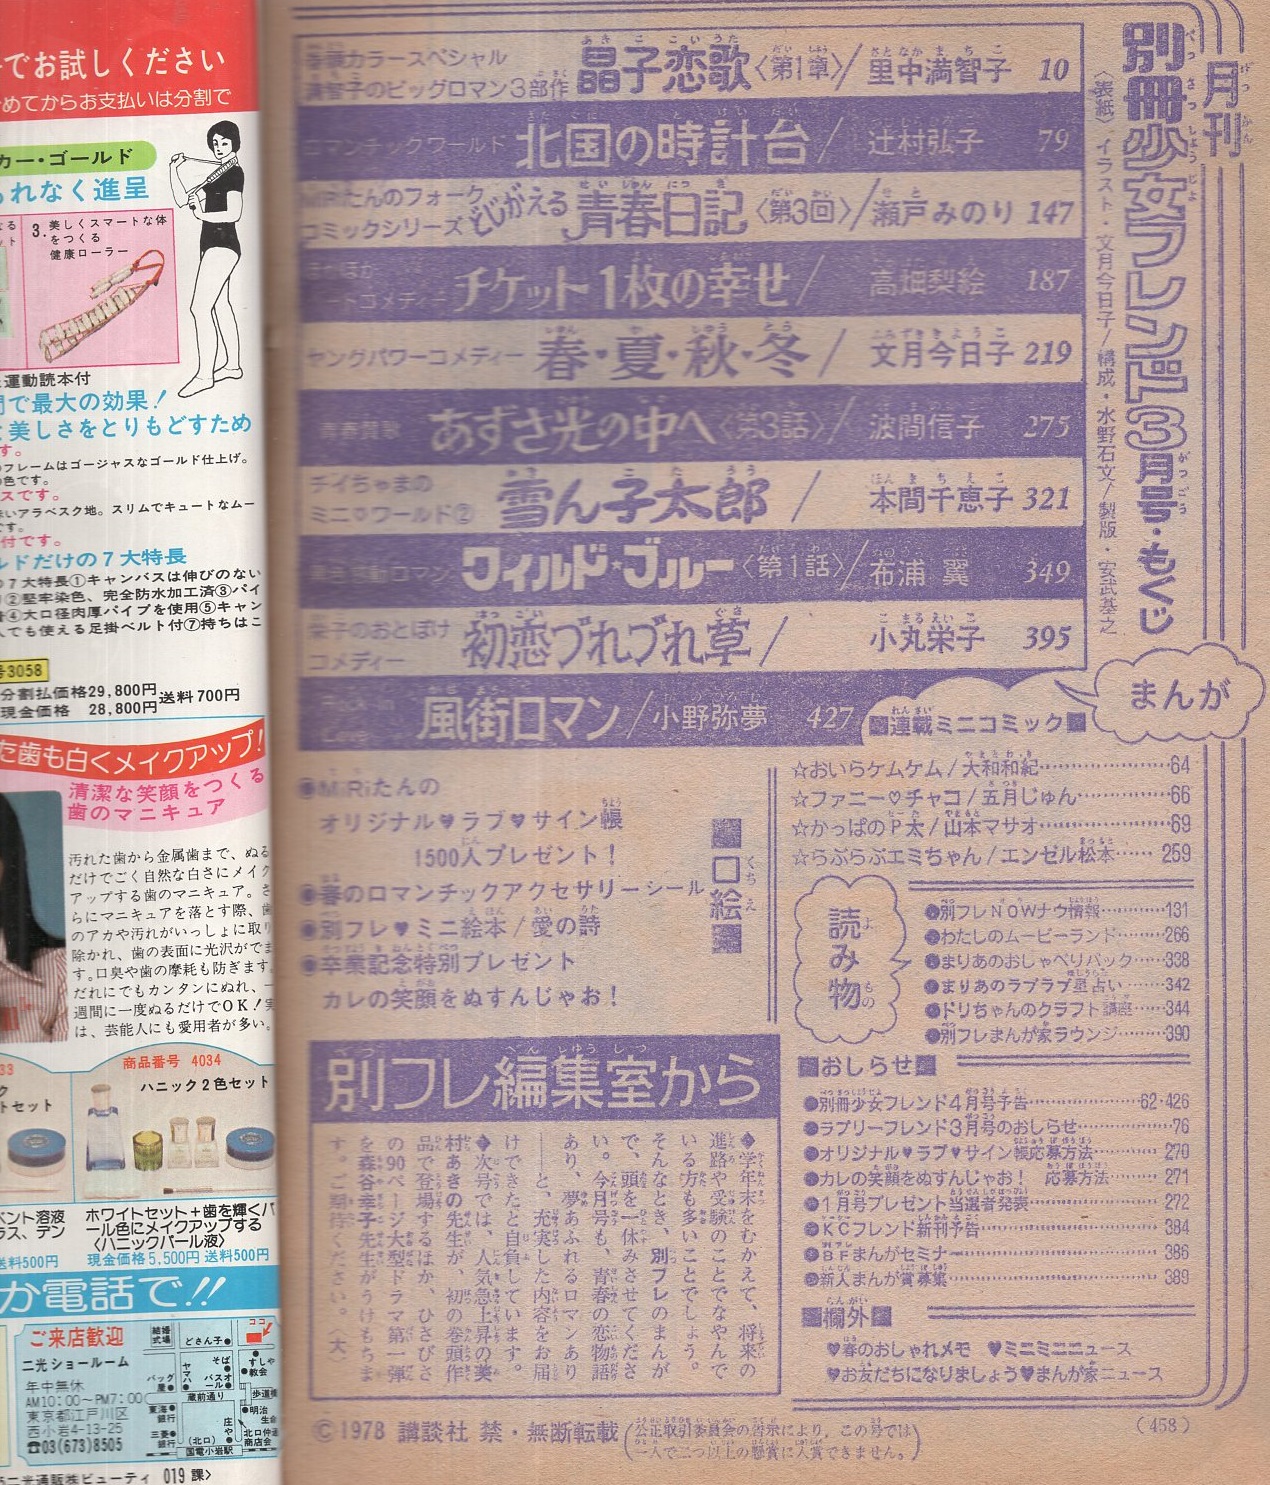 月刊
別冊少女フレンド3月号・もくじ
〈表紙〉イラスト・文月今日子/構成・水野石文/製版・安武基之
巻頭カラースペシャル
満智子のビッグロマン3部作
晶子恋歌〈第1章〉/里中満智子 10
ロマンチックワールド 北国の時計台/辻村弘子 79
MiRiたんのフォーク
コミックシリーズ
どじがえる青春日記〈第3回〉/瀬戸みのり 147
チケット1枚の幸せ/高畑梨絵 187
ヤングパワーコメディー 春・夏・秋・冬/文月今日子 219
青春賛歌 あずさ光の中へ〈第3話〉/波間信子 275
チイちゃまの
ミニ♡ワールド②
雪ん子太郎/本間千恵子 321
ワイルド★ブルー〈第1話〉/布浦翼 349
栄子のおとぼけ
コメディー
初恋づれづれ草/小丸栄子 395
風街ロマン/小野弥夢 427
まんが
■連載ミニコミック■
☆おいらケムケム/大和和紀……64
☆ファニー♡チャコ/五月じゅん……66
☆かっぱのP太/山本マサオ……69
☆らぶらぶエミちゃん/エンゼル松本……259
■口絵■
●MiRiたんの
オリジナル♥ラブ♥サイン帳
1500人プレゼント!
●春のロマンチックアクセサリーシール
●別フレ♥ミニ絵本/愛の詩
●卒業記念特別プレゼント
カレの笑顔をぬすんじゃお!
読み物
●別フレNOWナウ情報……131
●わたしのムービーランド……266
●まりあのおしゃべりパック……338
●まりあのラブラブ星占い……342
●ドリちゃんのクラフト講座……344
●別フレまんが家ラウンジ……390
■おしらせ■
●別冊少女フレンド4月号予告……62・426
●ラブリーフレンド3月号のおしらせ……76
●オリジナル♥ラブ♥サイン帳応募方法……270
●カレの笑顔をぬすんじゃお! 応募方法……271
●1月号プレゼント当選者発表……272
●KCフレンド新刊予告……384
●BFまんがセミナー……386
●新人まんが賞募集……389
■欄外■
♥春のおしゃれメモ ♥ミニミニニュース
♥お友だちになりましょう♥まんが家ニュース
別フレ編集室から
◆学年末をむかえて、将来の
進路や受験のことでなやんで
いる方も多いことでしょう。
そんなとき、別フレのまんが
で、頭を一休みさせてくださ
い。今月号も、青春の恋物語
あり、夢あふれるロマンあり
――と、充実した内容をお届
けできたと自負しています。
◆次号では、人気急上昇の美
村あきの先生が、初の巻頭作
品で登場するほか、ひさびさ
の90ページ大型ドラマ第一弾
を森谷幸子先生がうけもちま
す。ご期待ください。 大
©1978 講談社 禁・無断転載
(公正取引委員会の告示により、この号では
一人で二つ以上の懸賞に入賞できません。)
(458)
でお試しください
めてからお支払いは分割で
カー・ゴールド
られなく進呈
3.美しくスマートな体
をつくる
健康ローラー
運動読本付
間で最大の効果!
美しさをとりもどすため
す。
フレームはゴージャスなゴールド仕上げ。
の色です。
スです。
いアラベスク地。スリムでキュートなムー
です。
付です。
ルドだけの7大特長
の7大特長①キャンバスは伸びのない
②堅牢染色、完全防水加工済③パイ
④大口径肉厚パイプを使用⑤キャン
人でも使える足掛ベルト付⑦持ちはこ
号3058
分割払価格29,800円
現金価格 28,800円
送料700円
た歯も白くメイクアップ!
清潔な笑顔をつくる
歯のマニキュア
汚れた歯から金属歯まで、ぬる
だけでごく自然な白さにメイク
アップする歯のマニキュア。さ
らにマニキュアを落とす際、歯
のアカや汚れがいっしょに取り
除かれ、歯の表面に光沢がでま
す。口臭や歯の摩耗も防ぎます。
だれにでもカンタンにぬれ、一
週間に一度ぬるだけでOK!実
は、芸能人にも愛用者が多い。
商品番号 4034
ハニック2色セット
トセット
ント溶液
ラス、テン
送料500円
ホワイトセット+歯を輝くパ
ール色にメイクアップする
〈ハニックパール液〉
現金価格5,500円 送料500円
か電話で!!
ご来店歓迎
二光ショールーム
年中無休
AM10:00〜PM7:00
東京都江戸川区
西小岩4-13-25
☎03(673)8505
結婚式場
どさん子●
ココ
すしや
教会
そば
バスオール
ヤマハ
バッグ屋
蔵前通り
歩道橋
東海銀行
三菱銀行
庄や
明治生命
北口仲通商店会
(北口)
国電小岩駅
二光通販㈱ビューティ 019課〉